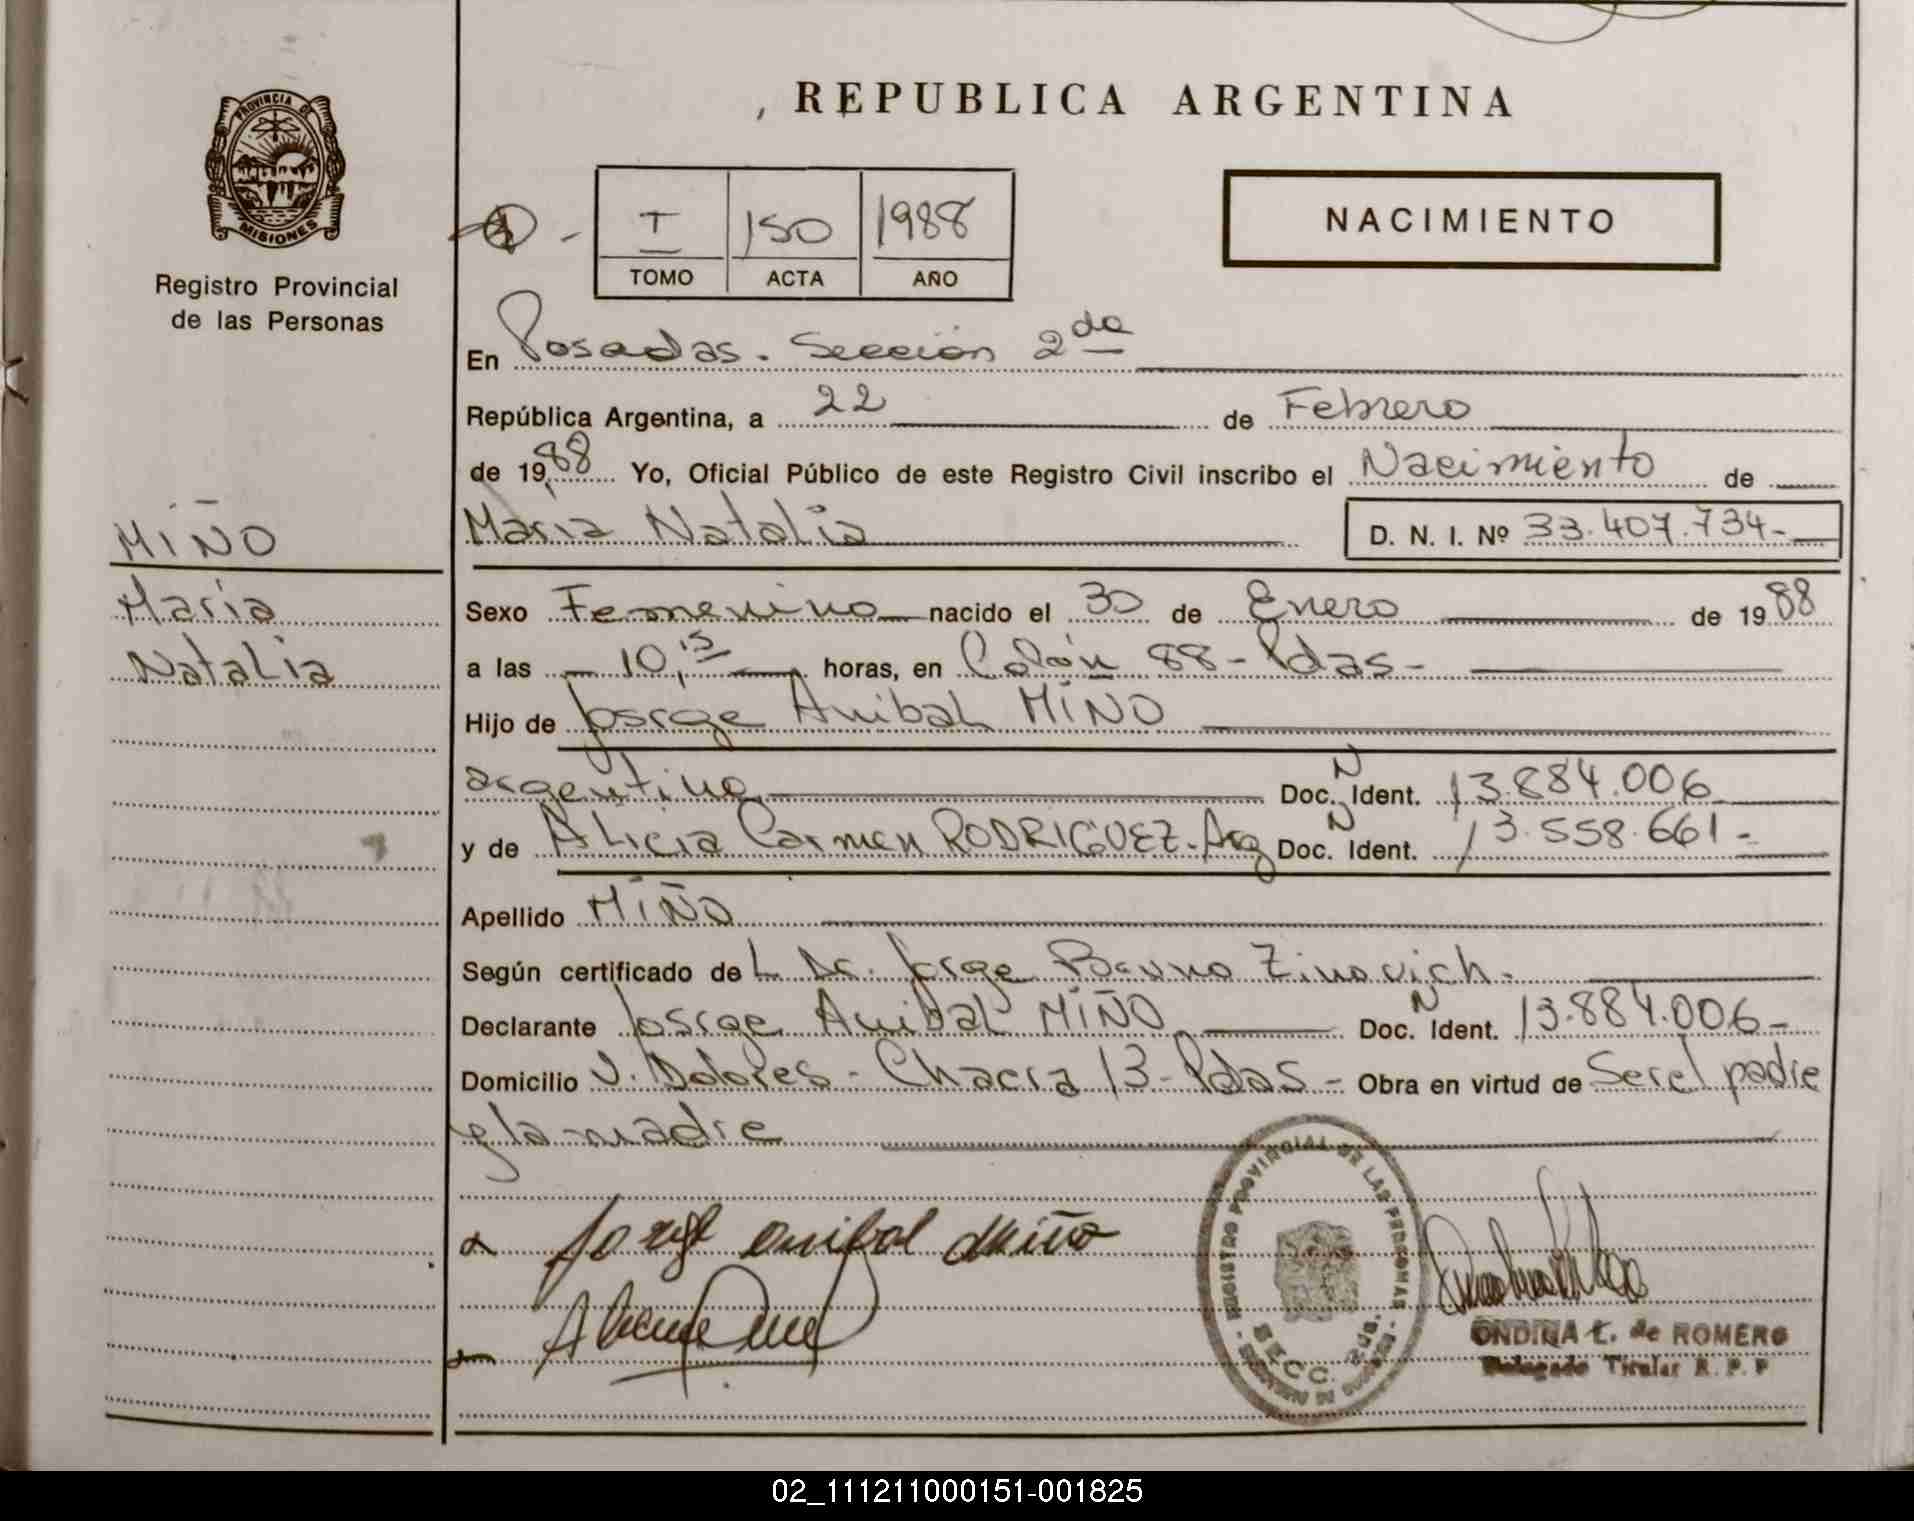 REPUBLICA ARGENTINA
PROVINCIA DE
MISIONES
Registro Provincial
de las Personas
I 150 1988
TOMO ACTA AÑO
NACIMIENTO
En Posadas. Sección 2da
República Argentina, a 22 de Febrero
de 1988 Yo, Oficial Público de este Registro Civil inscribo el Nacimiento de
MIÑO
María Natalia D. N. I. Nº 33.407.734-
María
Natalia
Sexo Femenino nacido el 30 de Enero de 1988
a las 10,15 horas, en Colón 88 - Pdas -
Hijo de Jorge Anibal MIÑO
argentino Doc. N Ident. 13.884.006
y de Alicia Carmen RODRIGUEZ - Arg Doc. N Ident. 13.558.661 -
Apellido MIÑO
Según certificado del Dr. Jorge Bruno Zinovich.
Declarante Jorge Anibal MIÑO Doc. N Ident. 13.884.006 -
Domicilio V. Dolores - Chacra 13 - Pdas - Obra en virtud de Ser el padre
y la madre
Jorge Anibal Miño
REGISTRO PROVINCIAL DE LAS PERSONAS
SECC.
ONDINA L. de ROMERO
Delegado Titular R. P. P
02_111211000151-001825